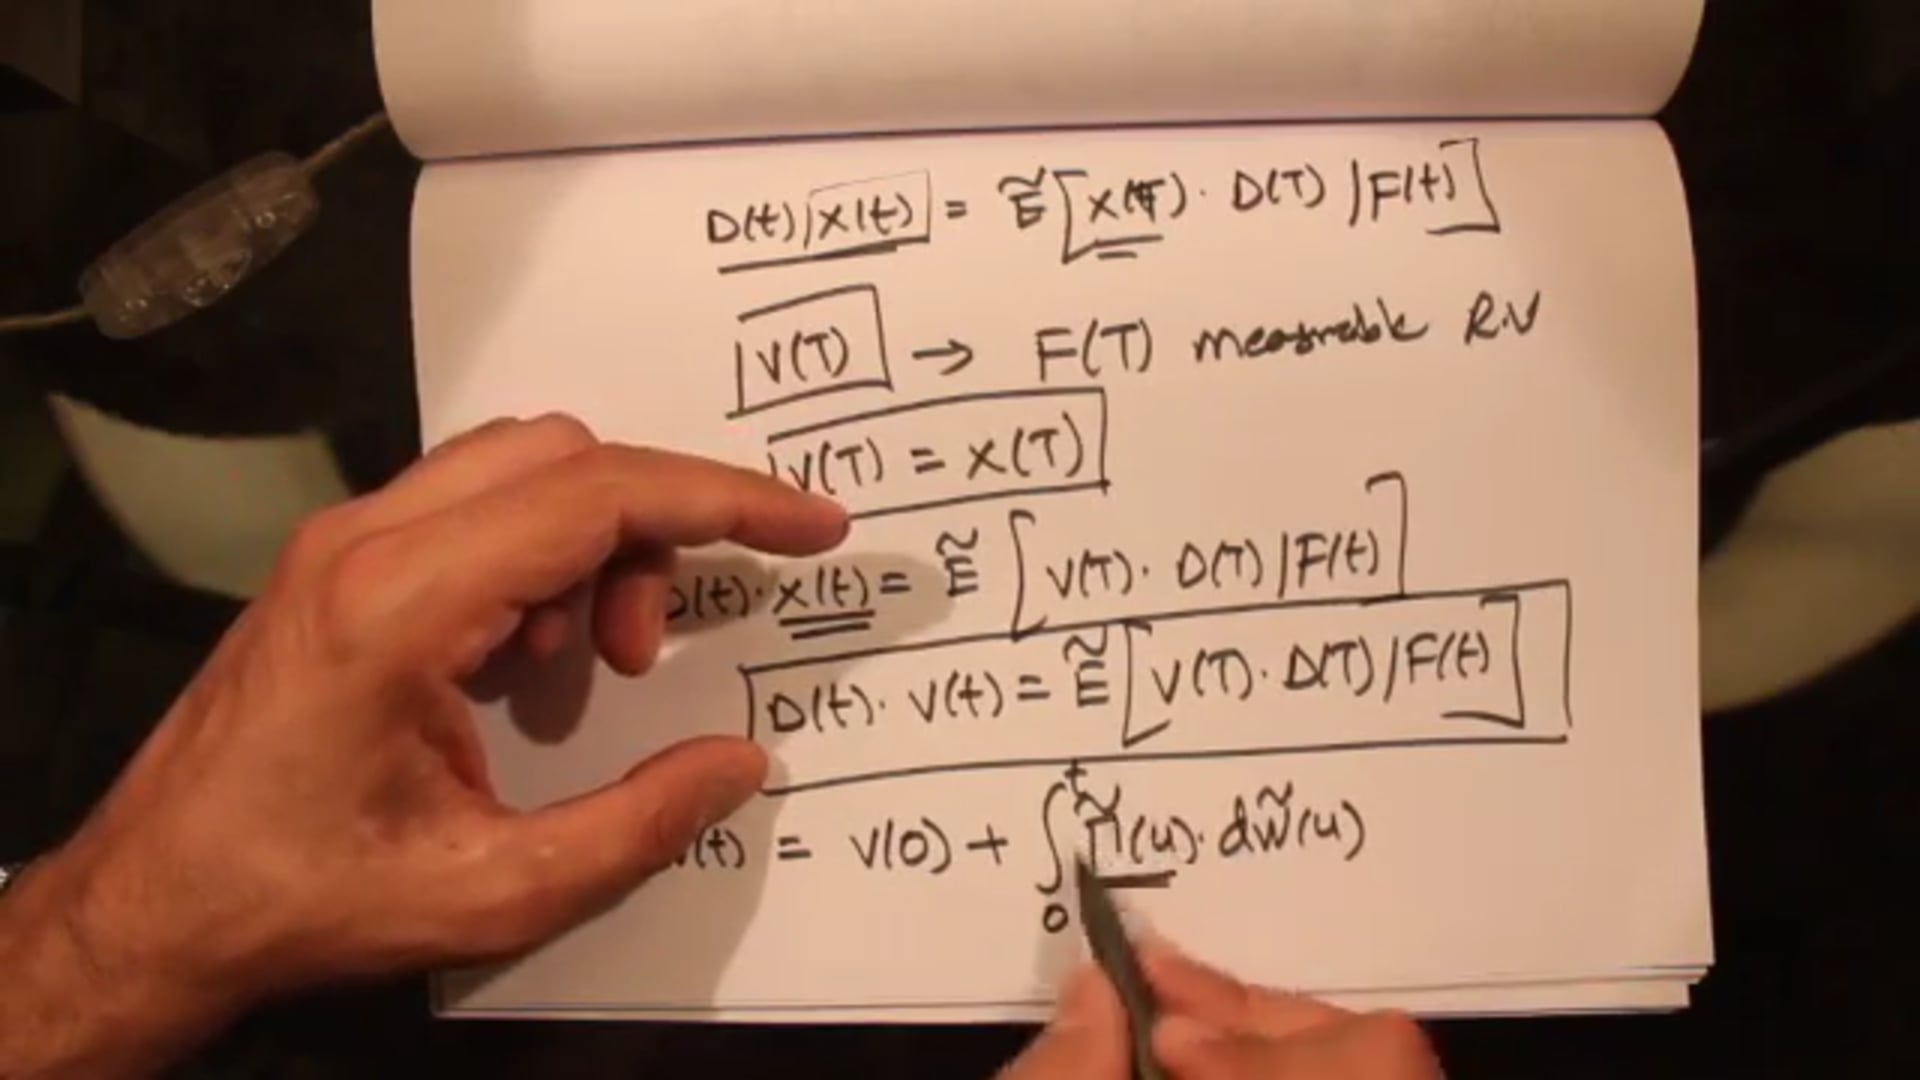 D(t) X(t) = Ẽ[X(T) · D(T) | F(t)]
V(T) → F(T) measurable R.V
V(T) = X(T)
D(t) · X(t) = Ẽ [V(T) · D(T) | F(t)]
D(t) · V(t) = Ẽ [V(T) · D(T) | F(t)]
V(t) = V(0) + ∫₀ᵗ Γ̃(u) · dW̃(u)